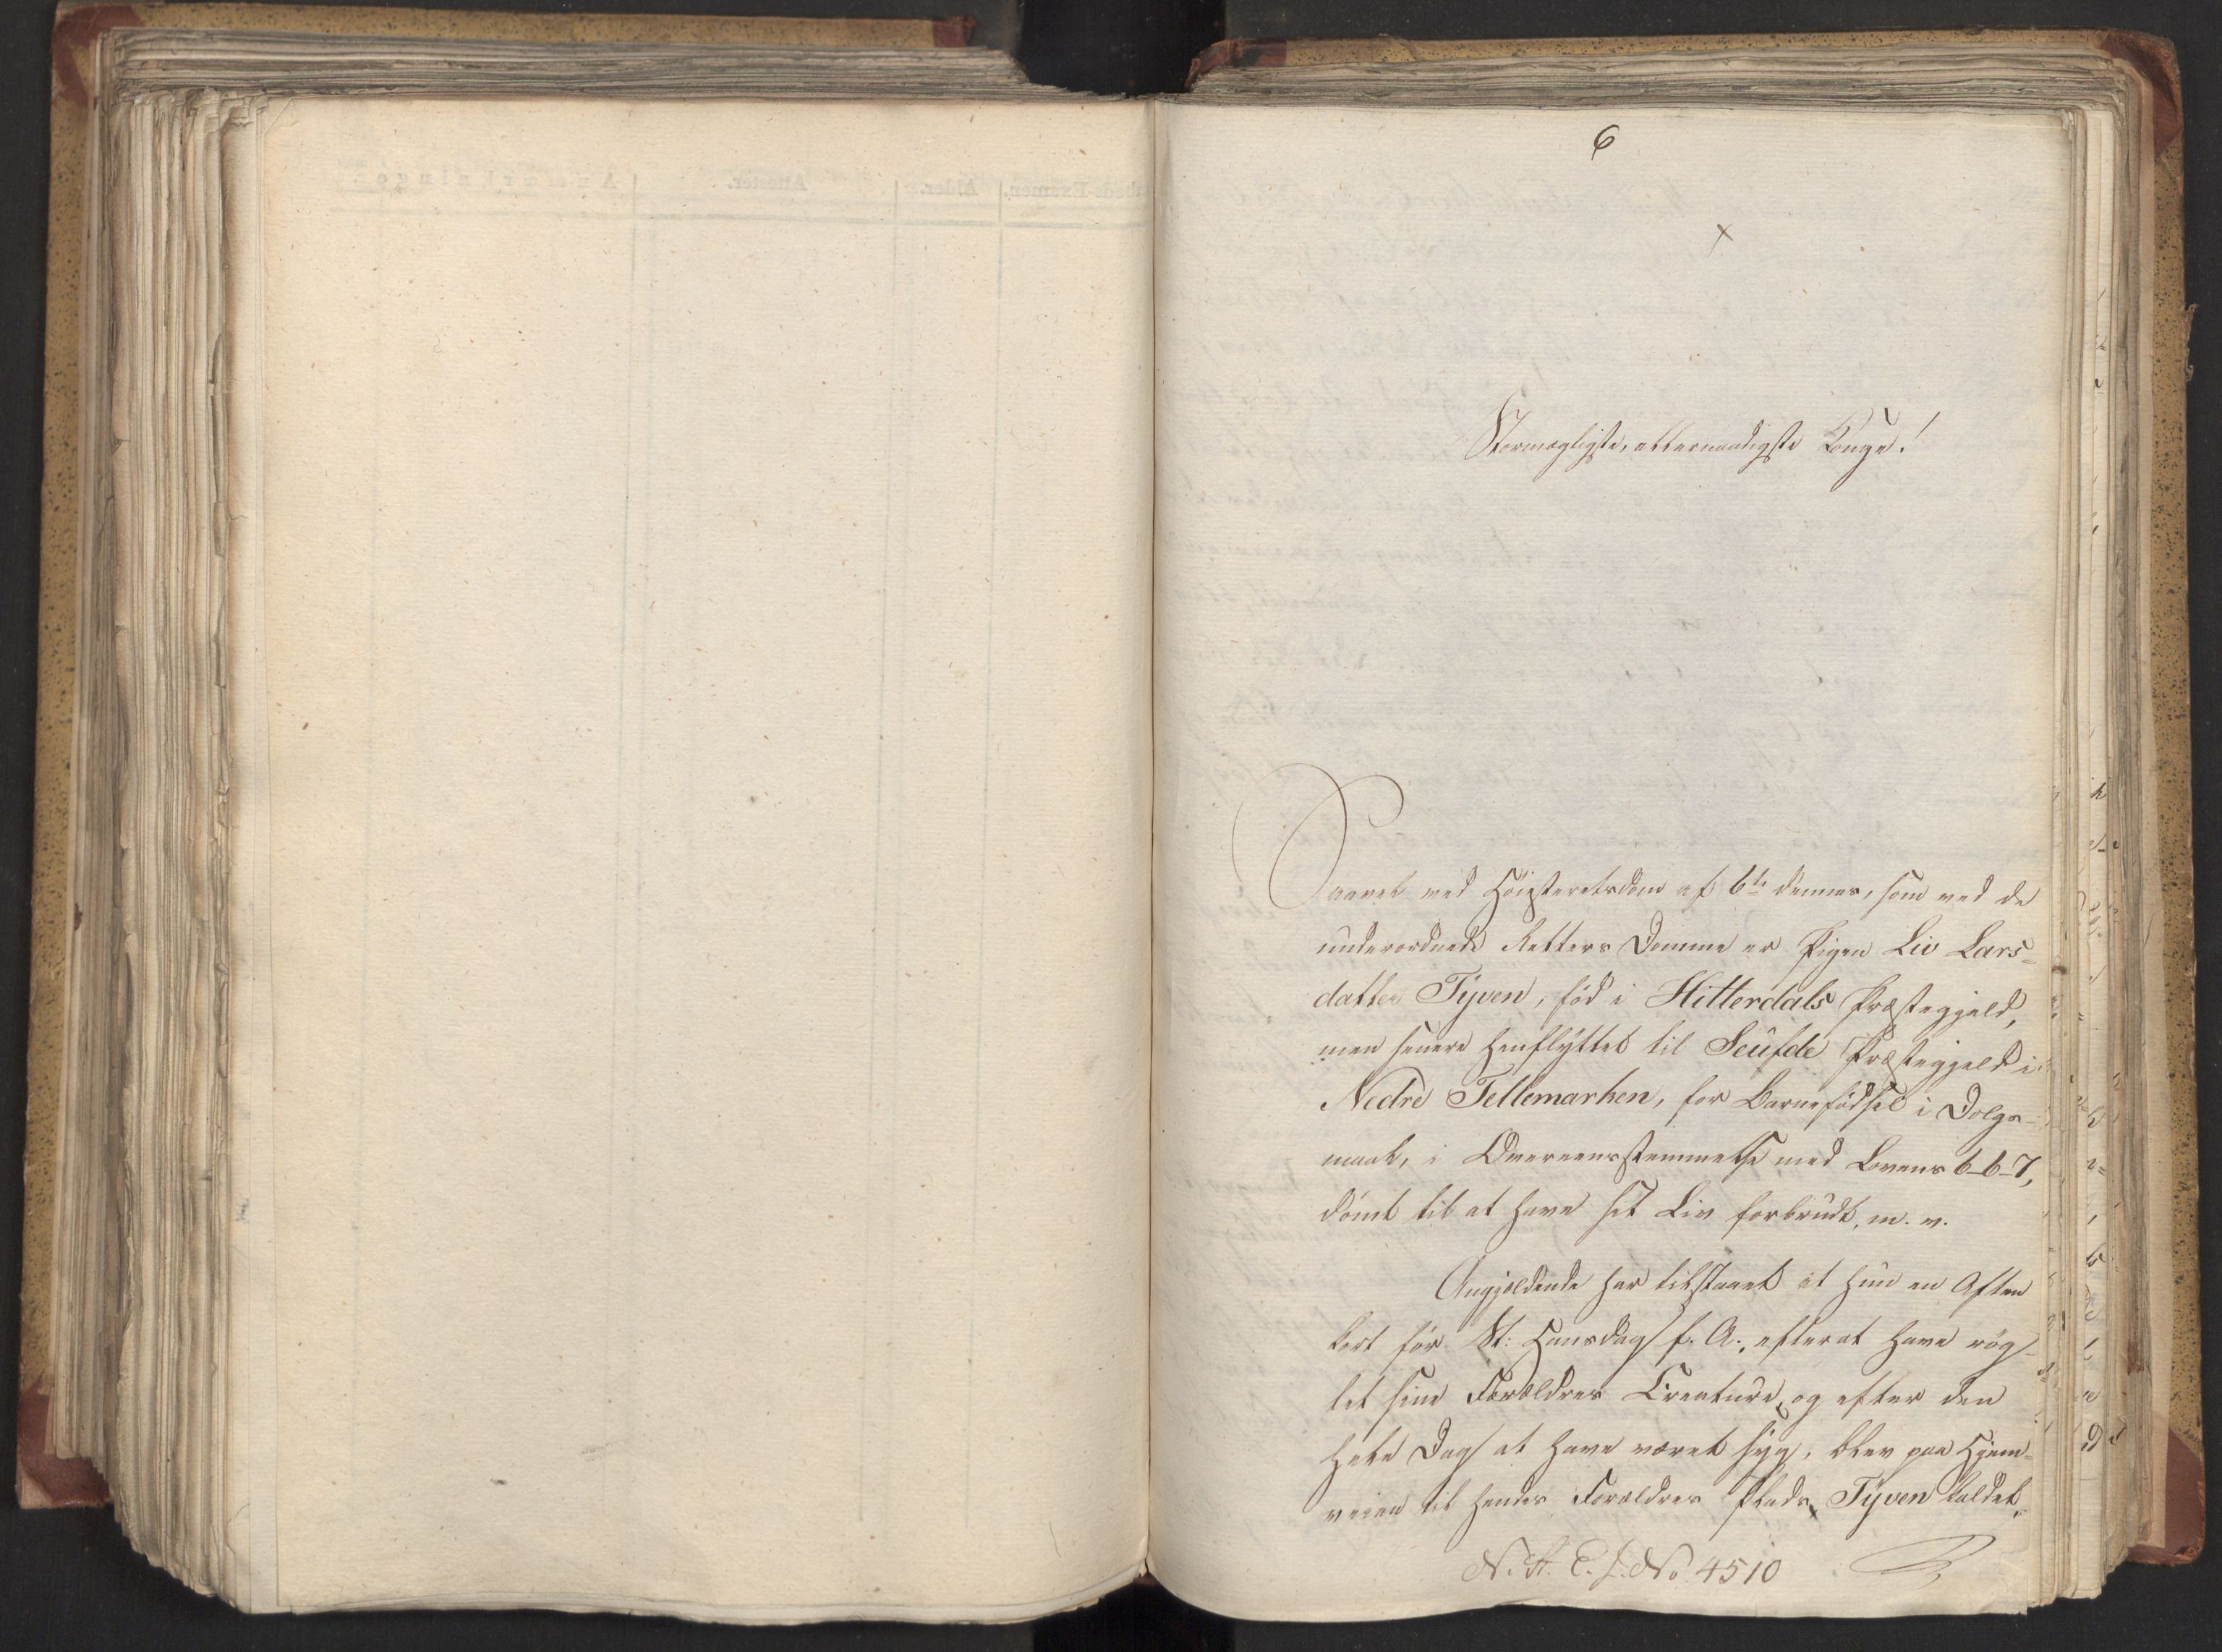 6
x
Stormægtigste, allernaadigste Konge!
Saavel ved Höiesteretsdom af 6te dennes, som ved de
underordnede Retters Domme er Pigen Liv Lars-
datter Tÿven, föd i Hitterdals Præstegjeld,
men senere henflÿttet til Seufde Præstegjeld i
Nedre Tellemarken, for Barnefödsel i Dolgs-
maal, i Overeensstemmelse med Lovens 6-6-7,
dömt til at have sit Liv forbrudt, m. v.
Angjeldende har tilstaaet at hun en Aften
kort för St: Hansdag f. A., efterat have rög-
tet sine Forældres Creature, og efter den
hele Dag at have været sÿg, blev paa Hjem-
veien til hendes Forældres Plads, Tÿven kaldet,
N. R. C. J. No 4510